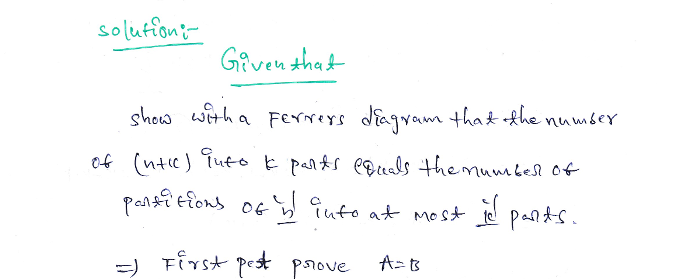 solution:-
Given that
show with a Ferrers diagram that the number
of (n+k) into k parts equals the number of
partitions of 'n' into at most 'k' parts.
=) First pest prove A=B